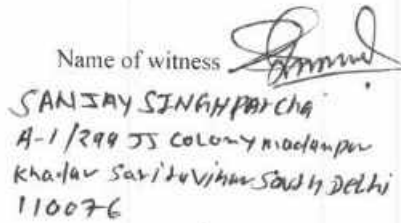 Name of witness
SANJAY SINGH PARCha
A-1/299 JJ COLONY madanpur
khadar Sarita Vihar South Delhi
110076